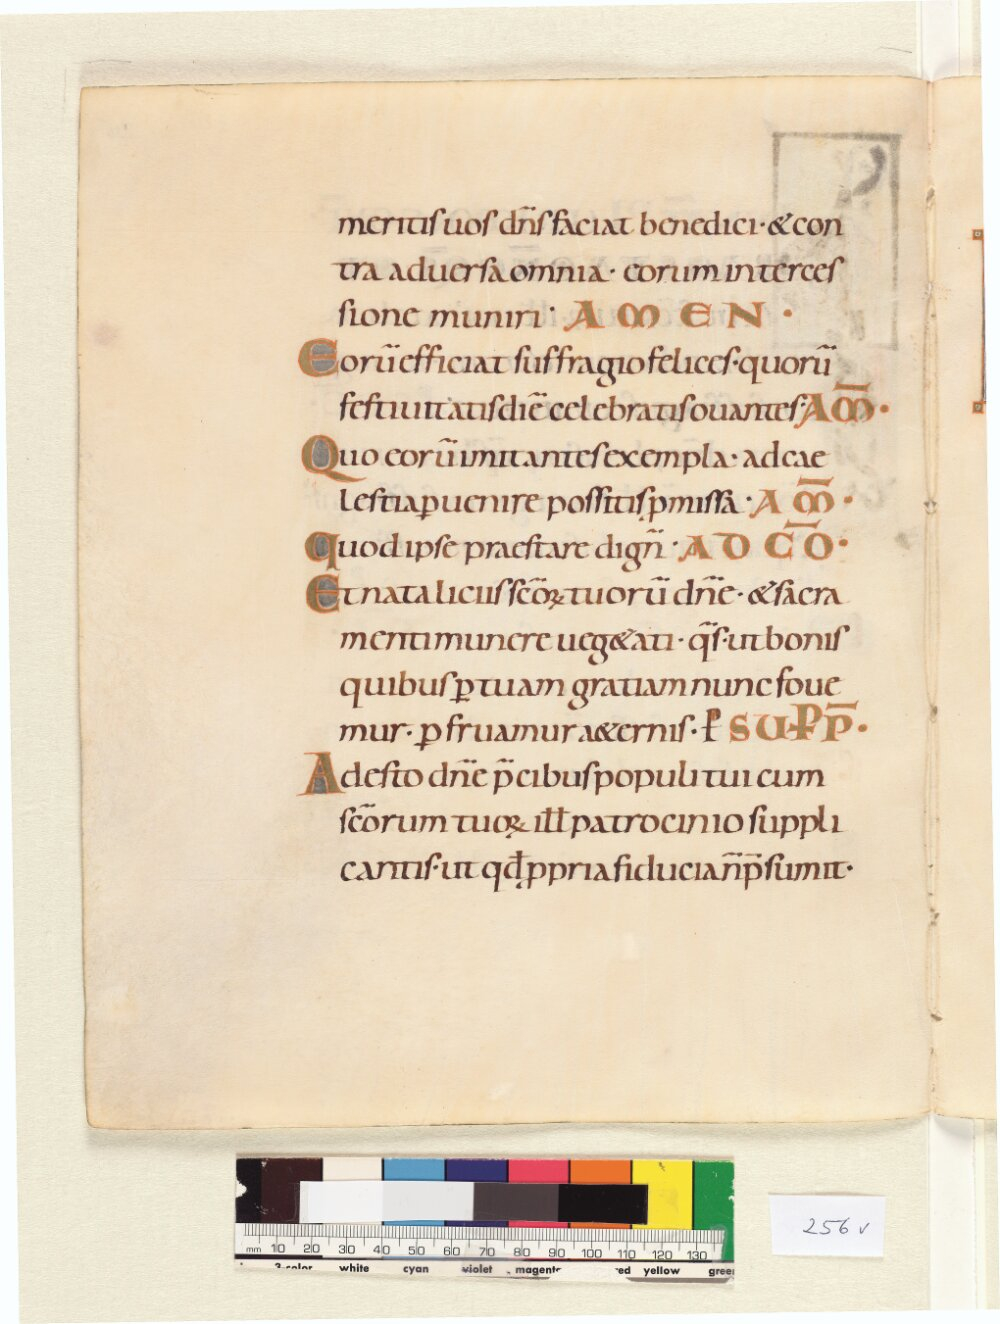 meritis uos dn̄s faciat benedici· & con
tra aduersa omnia· eorum interces
sione muniri· AMEN·
Eorū efficiat suffragio felices· quorū
festiuitatis diē celebratis ouantes· AM̄·
Quo eorū imitantes exempla· ad cae
lestia ꝑuenire possitis ꝓmissa· AM̄·
quod ipse praestare dign̄· AD CŌ·
Et nataliciis sc̄oꝝ tuorū dn̄e· & sacra
menti munere ueg&ati· q̄s· ut bonis
quibus ꝑ tuam gratiam nunc foue
mur· ꝑfruamur a&ernis· ꝑ SUP PP̄·
Adesto dn̄e p̄cibus populi tui cum
sc̄orum tuoꝝ ill̄ patrocinio suppli
cantis· ut qđ ꝓpria fiducia n̄ p̄sumit·
256 v
mm 10 20 30 40 50 60 70 80 90 100 110 120 130
3-color white cyan violet magenta red yellow green